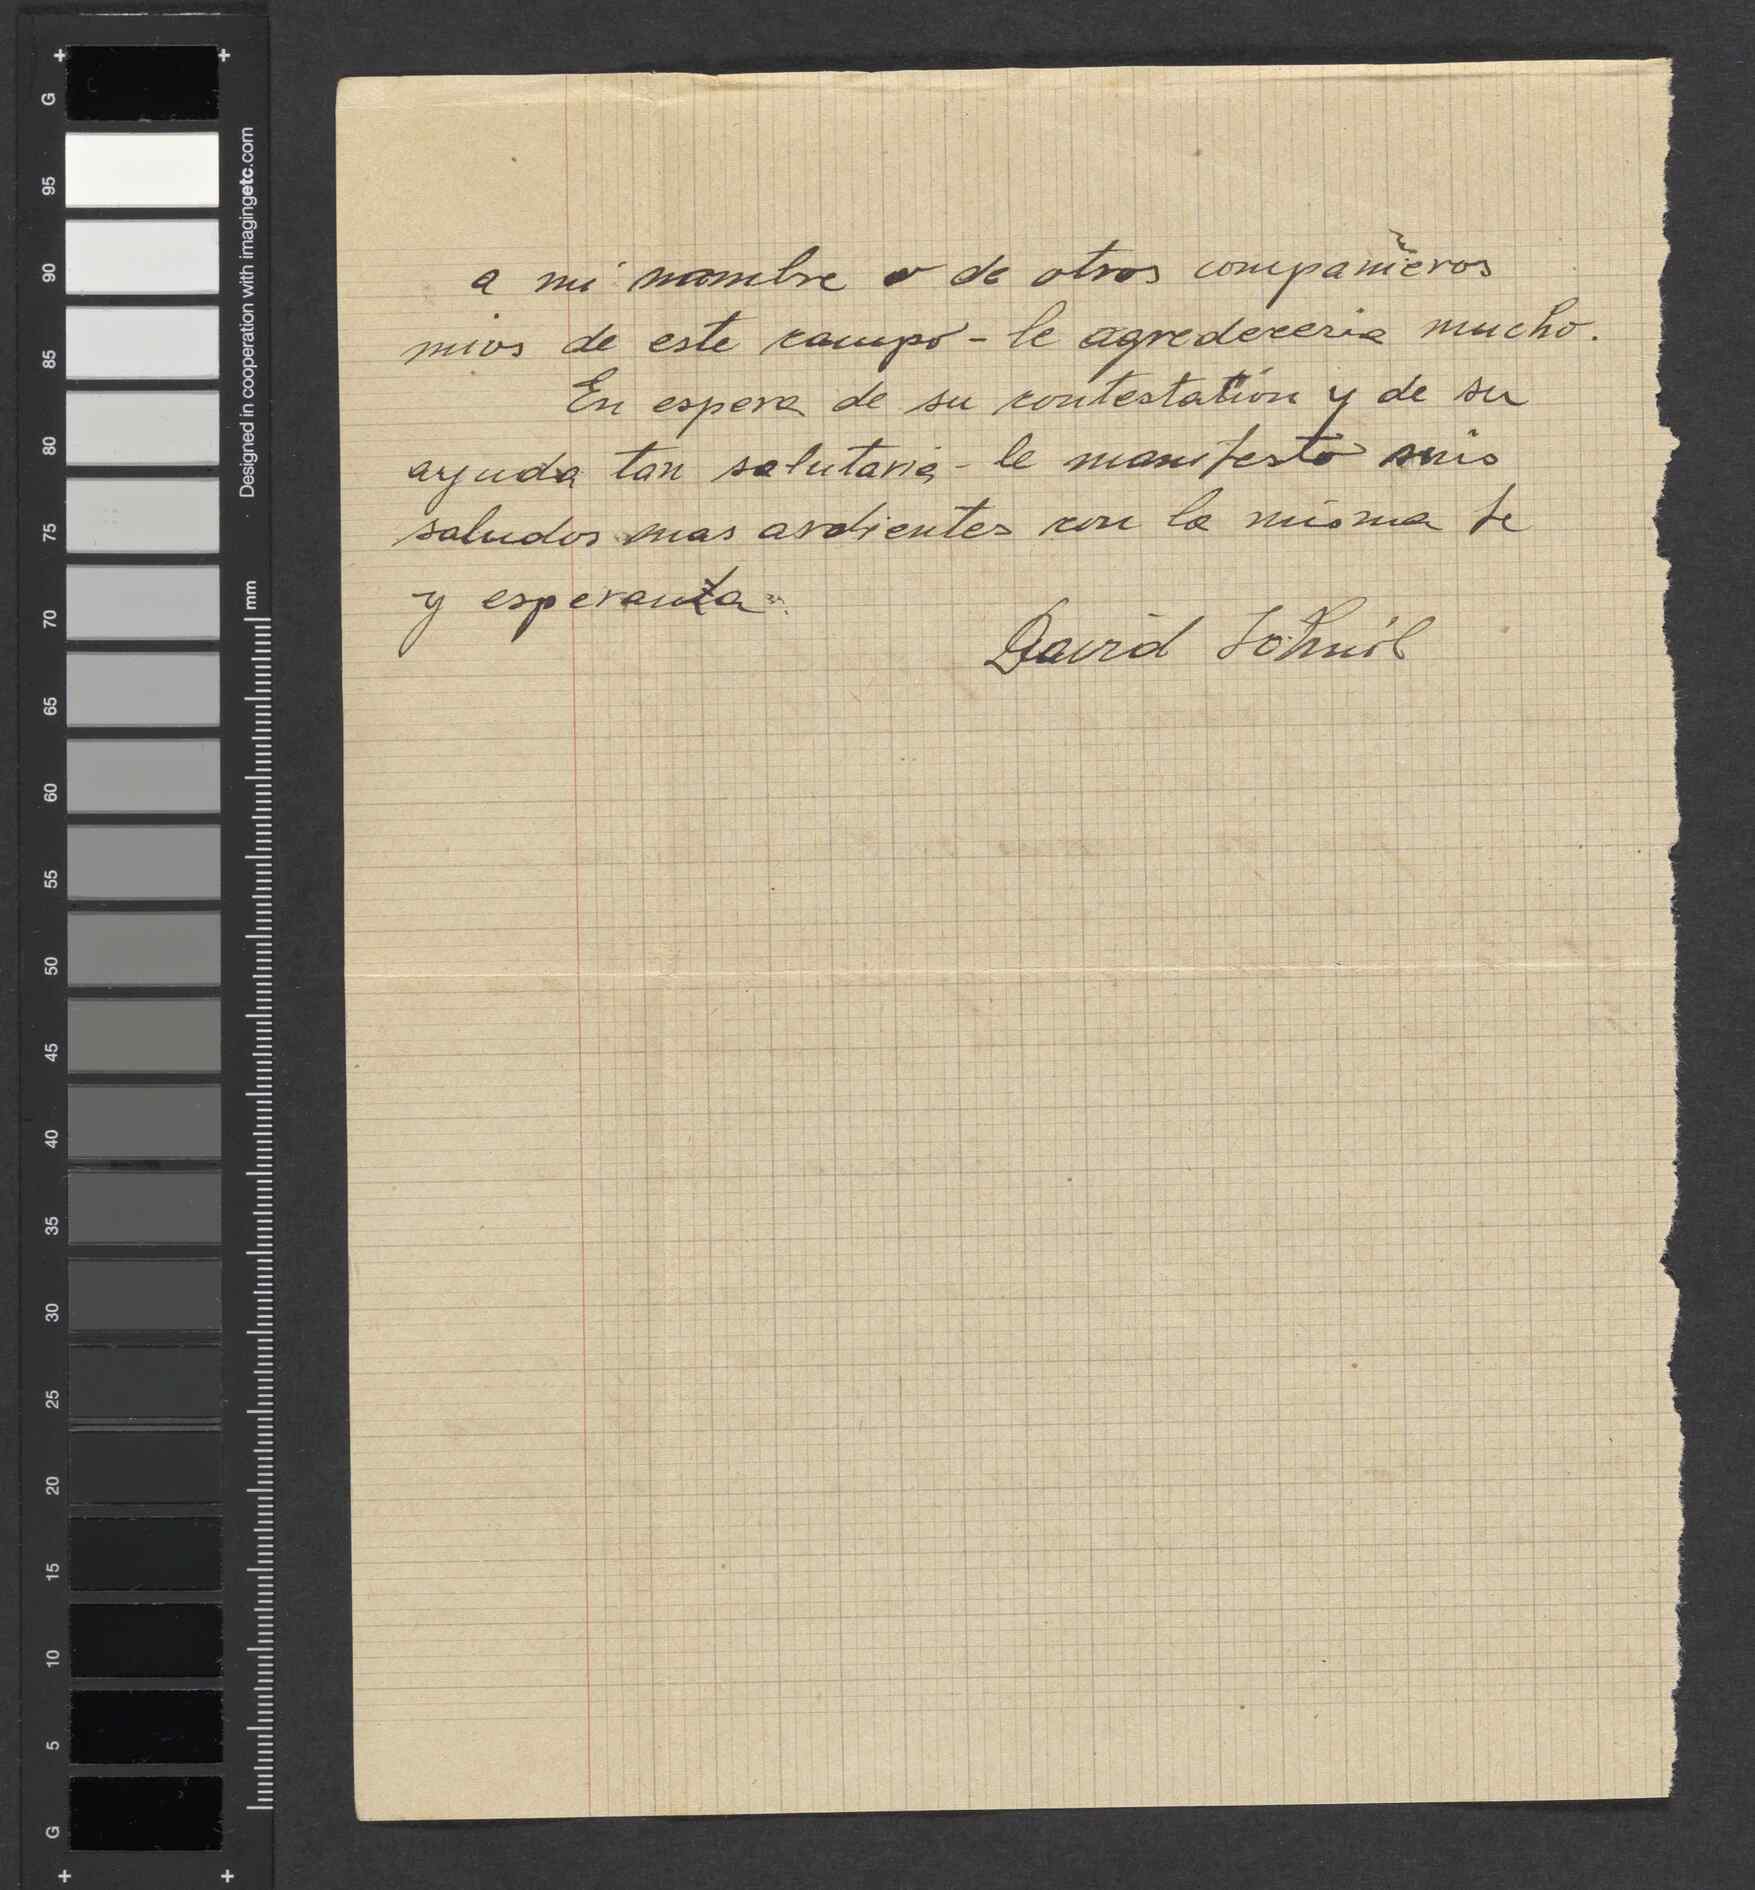 a mi nombre o de otros compañieros
mios de este campo - le agredeceria mucho.
En espera de su contestation y de su
ayuda tan salutaria - le manifesto mis
saludos mas ardientes con la misma fe
y esperanza.
David
G
95
90
85
80
75
70
65
60
55
50
45
40
35
30
25
20
15
10
5
G
Designed in cooperation with imagingetc.com
mm